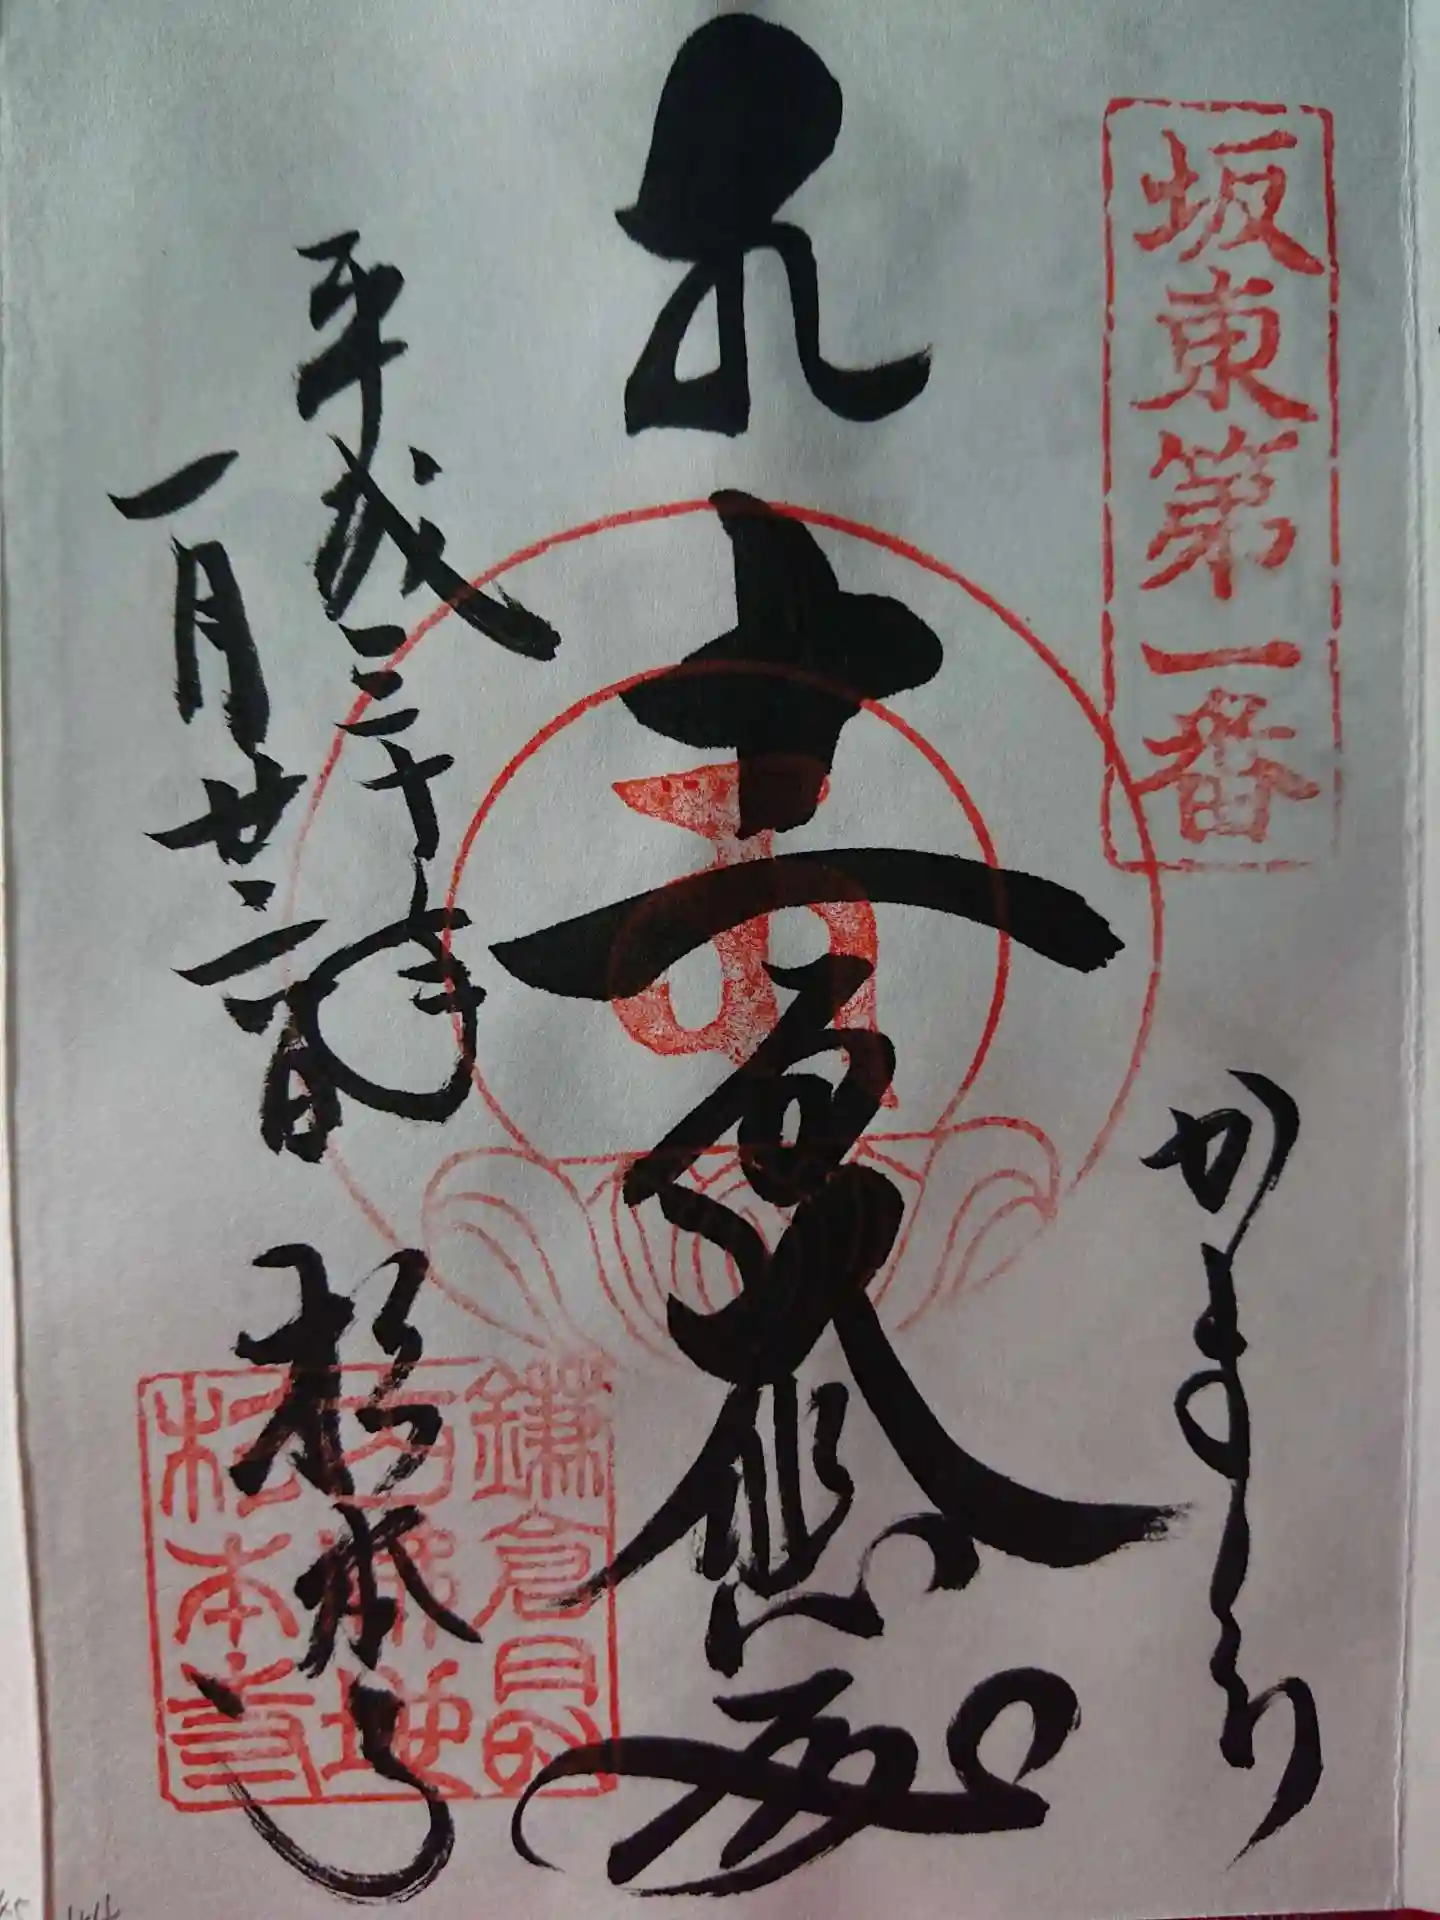 坂東第一番
かまくら
十一面大悲殿
平成三十年
一月廿二日
杉本寺
鎌倉
杉本寺